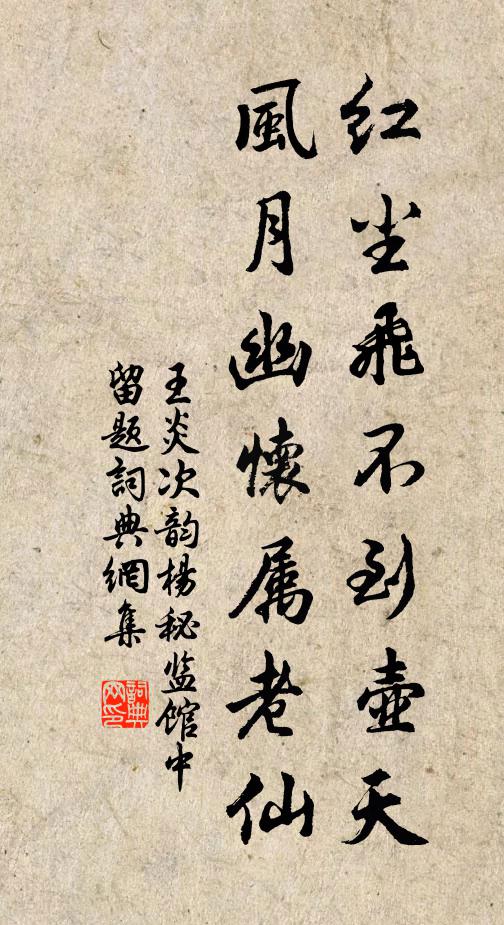 红尘飛不到壺天
風月幽懷属老仙
王炎次韵楊秘监馆中
留題詞典網集
詞典网印